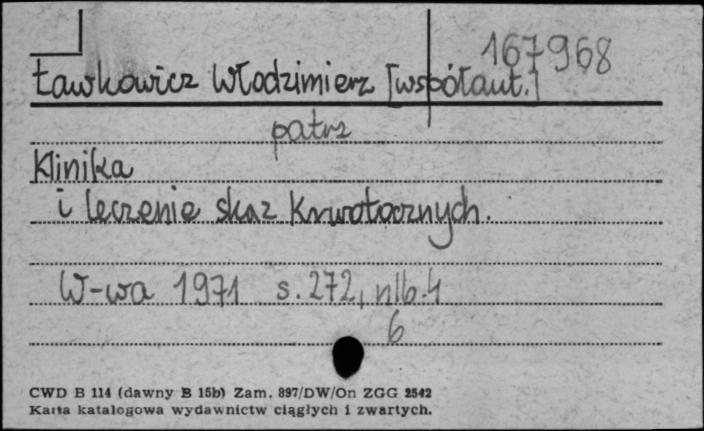 167968
Ławkowicz Włodzimierz [współaut.]
patrz
Klinika
i leczenie skaz krwotocznych.
W-wa 1971 s. 272, nlb. 4
6
CWD B 114 (dawny B 15b) Zam. 897/DW/On ZGG 2542
Karta katalogowa wydawnictw ciągłych i zwartych.